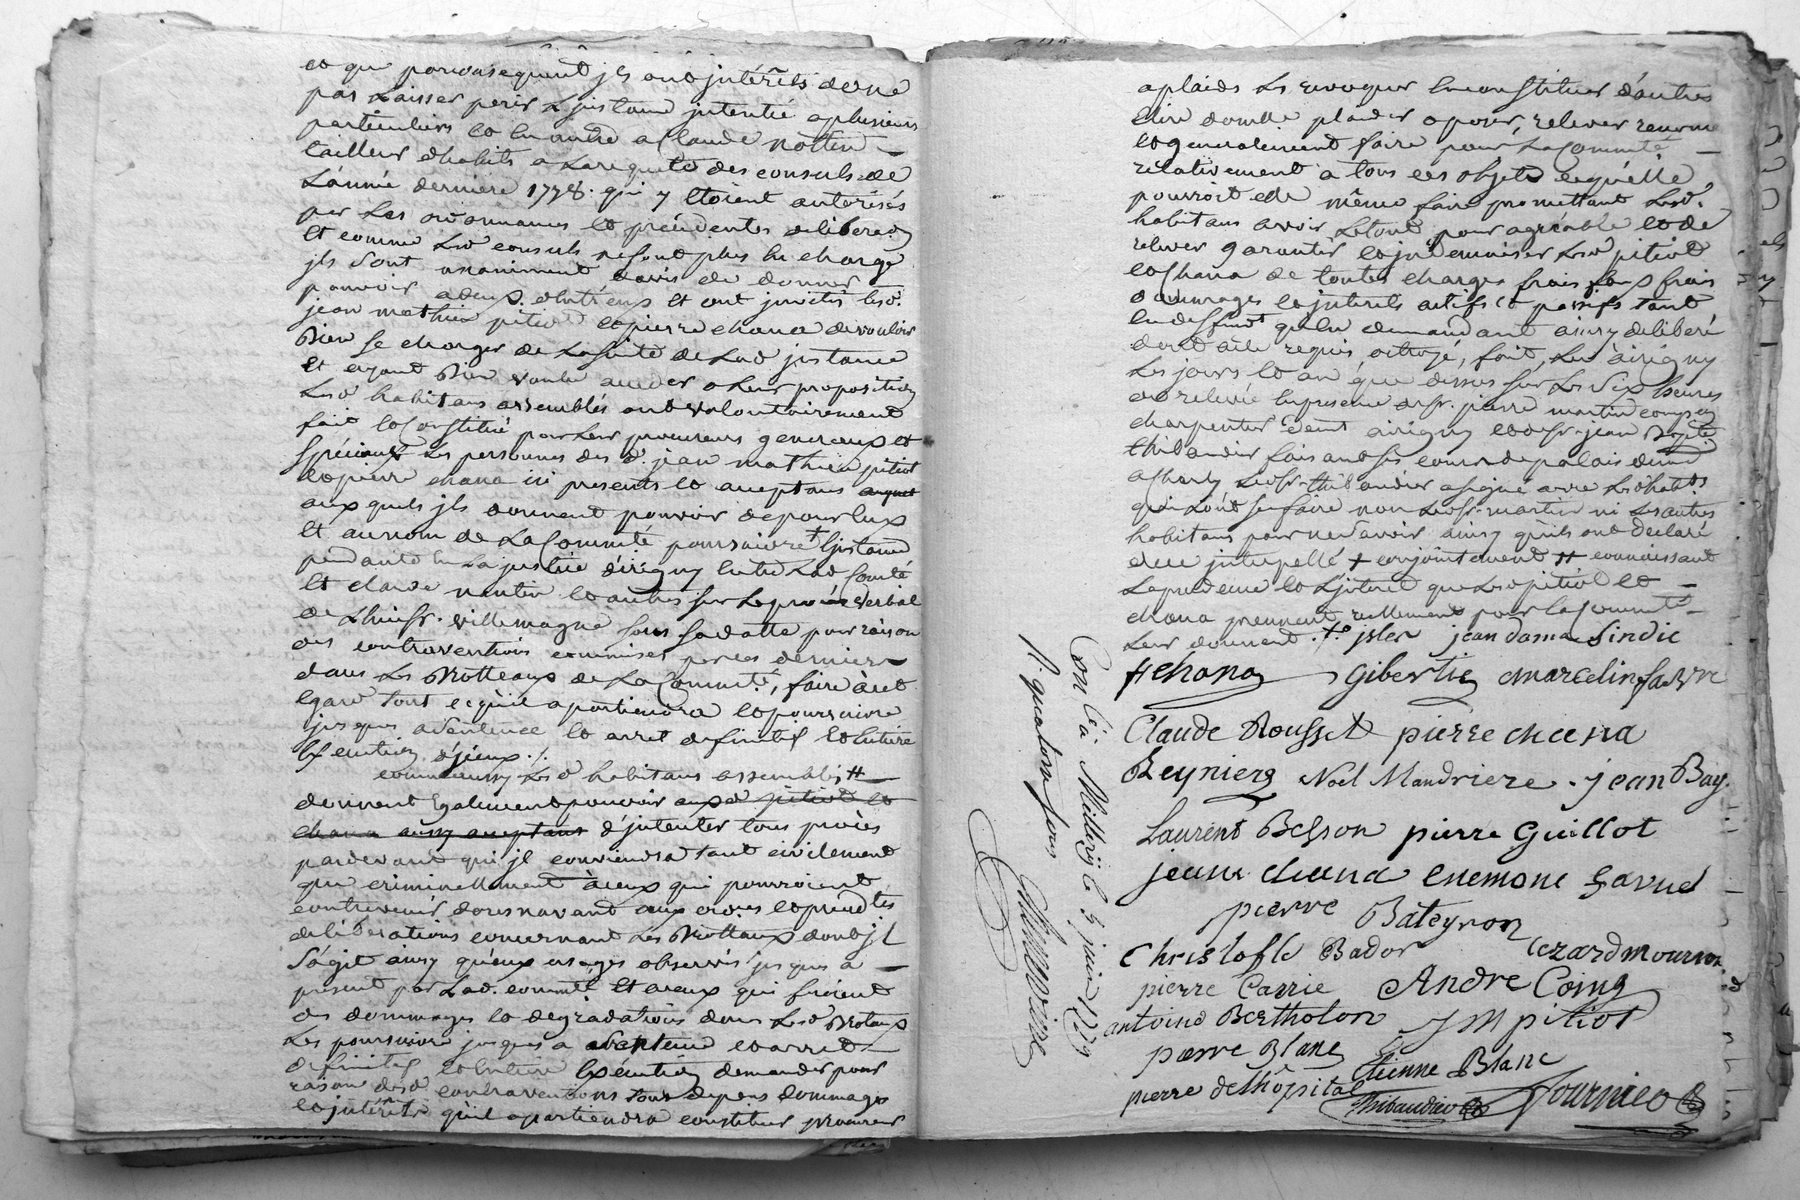 et que par consequent ils ont intérêts de ne
pas laisser perir l'jnstance jntentée a plusieurs
particuliers et en outre a Claude nottin
tailleur d'habits a la requete des consuls de
l'année derniere 1778. qui y etoient autorisés
par les ordonnances et précédentes deliberaõn
et comme les d consuls ne sont plus en charge
jls sont unanimement d'avis de donner
pouvoir a deux d'entr'eux et ont jnvités les d.
jean mathieu pitiot et pierre chana de vouloir
bien se charger de la suite de lad jnstance
et ayant bien voulu acceder a leur proposition
les d habitans assemblés ont volontairement
fait et constitué pour leur procureurs generaux et
spéciaux les personnes des d. jean mathieu pitiot
et pierre chana ici presents et acceptans
aux quels jls donnent pouvoir de pour eux
et au nom de la Commté poursuivre + l'jnstance
pendante en la justice d'irigny entre lad Comté
et claude nottin et autres sur le procès verbal
de l'huissr. villemagne sous sa datte pour raison
des contraventions commises par ces derniers
dans les Brotteaux de la Commté, faire à cet
egard tout ce qu'il apartiendra et poursuivre
jusques a sentence et arret definitif et entiere
execution d'jceux ./.
comme aussy les d habitans assemblés #
donnent egalement pouvoir aux d pitiot et
chana aussy acceptans d'jntenter tous procès
pardevant qui jl conviendra tant civilement
que criminellement à ceux qui pourroient
contrevenir doresnavant aux ordces et précédtes
deliberations concernant les Brotteaux dont jl
s'agit ainsy qu'aux usages observés jusques a
present par lad. commté et a ceux qui feroient
des dommages et degradations dans les d Brotaux
les poursuivre jusques a sentence et arret
definitif et entiere execution demander pour
raison desd contraventions tous depens dommages
et jntérêts qu'il apartiendra constituer procureur
a plaids les revoquer en constituer d'autres
elire domille plaider oposer, relever
et generalement faire pour la Commté
relativement a tous ces objets ce qu'elle
pourroit elle même faire promettant les d.
habitans avoir le tout pour agréable et de
relever garantir et jndemniser les d pitiot
et Chana de toutes charges frais faux frais
dommages et jnterets actifs et passifs tant
en deffendt qu'en demandant ainsy deliberé
dont acte requis octroyé, fait, lu à irigny
les jours et an que dessus sur les six heures
de relevée en presence de sr. pierre martin compagnon
charpentier dent irigny et de sr. jean Baptte
thibaudier faisant ses cours de palais dent
a Charly le d sr. thibaudier a signé avec les d habts
qui l'ont sçu faire non le d sr. martin ni les autres
habitans pour ne sçavoir ainsy qu'ils ont declaré
de ce jnterpellé + conjointement # connoissant
la prudence et l'jnteret que les d pitiot et
chana prennent reellement pour la Commté
leur donnent. jsler jean dama Sindic
# chana Gibertie marcelin favre
Claude Rousset pierre chana
Reyniers Noel Mandriere . jean Bay.
Laurent Besson pierre Guillot
jean chana enemont gavnd
pierre Bateyron
Christofle Bador
pierre Carrie Andre Coing
antoine Bertholon J M pitiot
pierre Blanc Etienne Blanc
pierre delhôpital
Thibaudier Fournier
Con lé à Millery le 5 juin 1779
R. quatorze sous